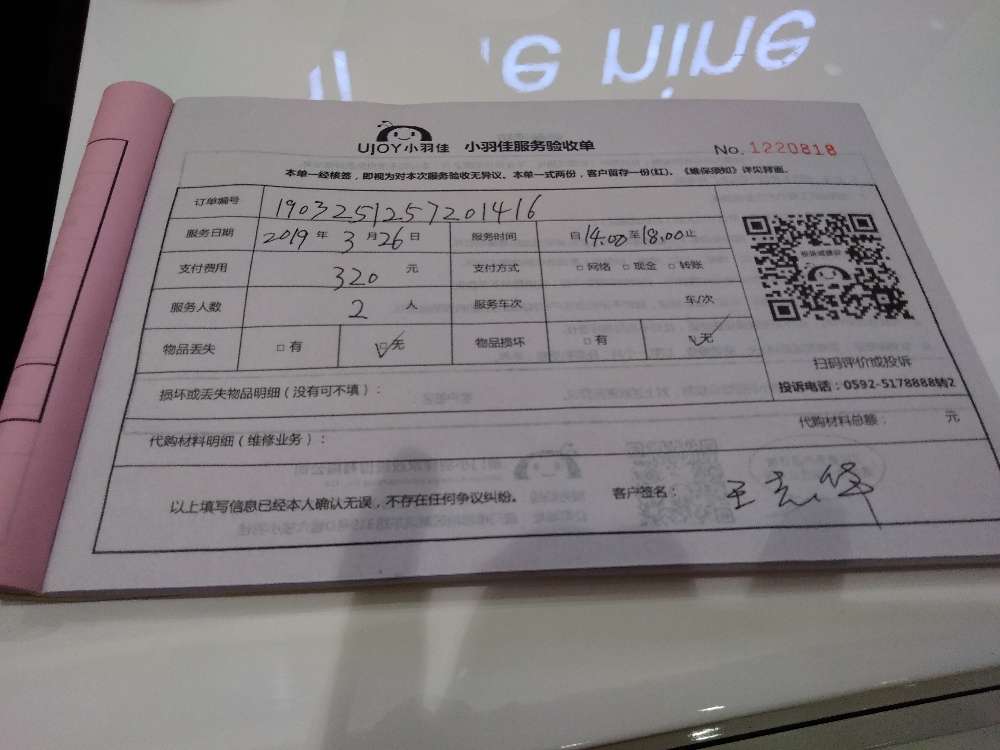 the nine
UJOY小羽佳 小羽佳服务验收单
No. 1220818
本单一经核签，即视为对本次服务验收无异议。本单一式两份，客户留存一份(红)。《维保须知》详见转面。
订单编号 1903251257201416
服务日期 2019年3月26日 服务时间 自14:00至18:00止
支付费用 320元 支付方式 □网络 □现金 □转账
服务人数 2人 服务车次 车/次
物品丢失 □有 ☑无 物品损坏 □有 ☑无
扫码评价或投诉
投诉电话：0592-5178888转2
损坏或丢失物品明细（没有可不填）：
代购材料明细（维修业务）： 代购材料总额： 元
以上填写信息已经本人确认无误，不存在任何争议纠纷。 客户签名：王志华